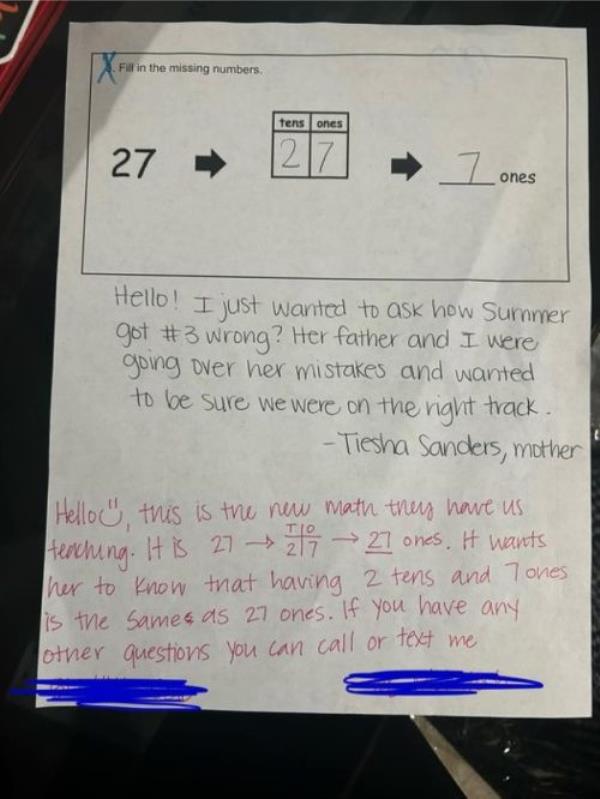 X. Fill in the missing numbers.
tens ones
27 → 2 7 → 7 ones
Hello! I just wanted to ask how Summer
got #3 wrong? Her father and I were
going over her mistakes and wanted
to be sure we were on the right track.
-Tiesha Sanders, mother
Hello, this is the new math they have us
T O
teaching. It is 27 → 2 7 → 27 ones. It wants
her to know that having 2 tens and 7 ones
is the same as 27 ones. If you have any
other questions you can call or text me